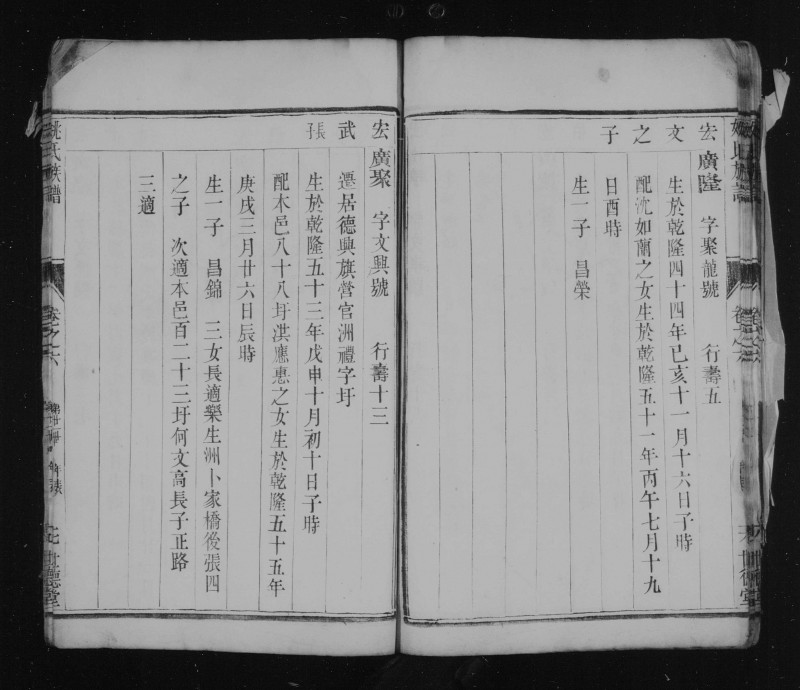 宏文之子
廣隆 字聚龍號 行壽五
生於乾隆四十四年己亥十一月十六日子時
配沈如蘭之女生於乾隆五十一年丙午七月十九
日酉時
生一子 昌榮
宏武 張
廣聚 字文興號 行壽十三
遷居德興旗營官洲禮字圩
生於乾隆五十三年戊申十月初十日子時
配本邑八十八圩淇應惠之女生於乾隆五十五年
庚戌三月廿六日辰時
生一子 昌錦 三女長適樂生洲卜家橋後張四
之子 次適本邑百二十三圩何文高長子正路
三適
姚氏族譜
卷之六
世德堂